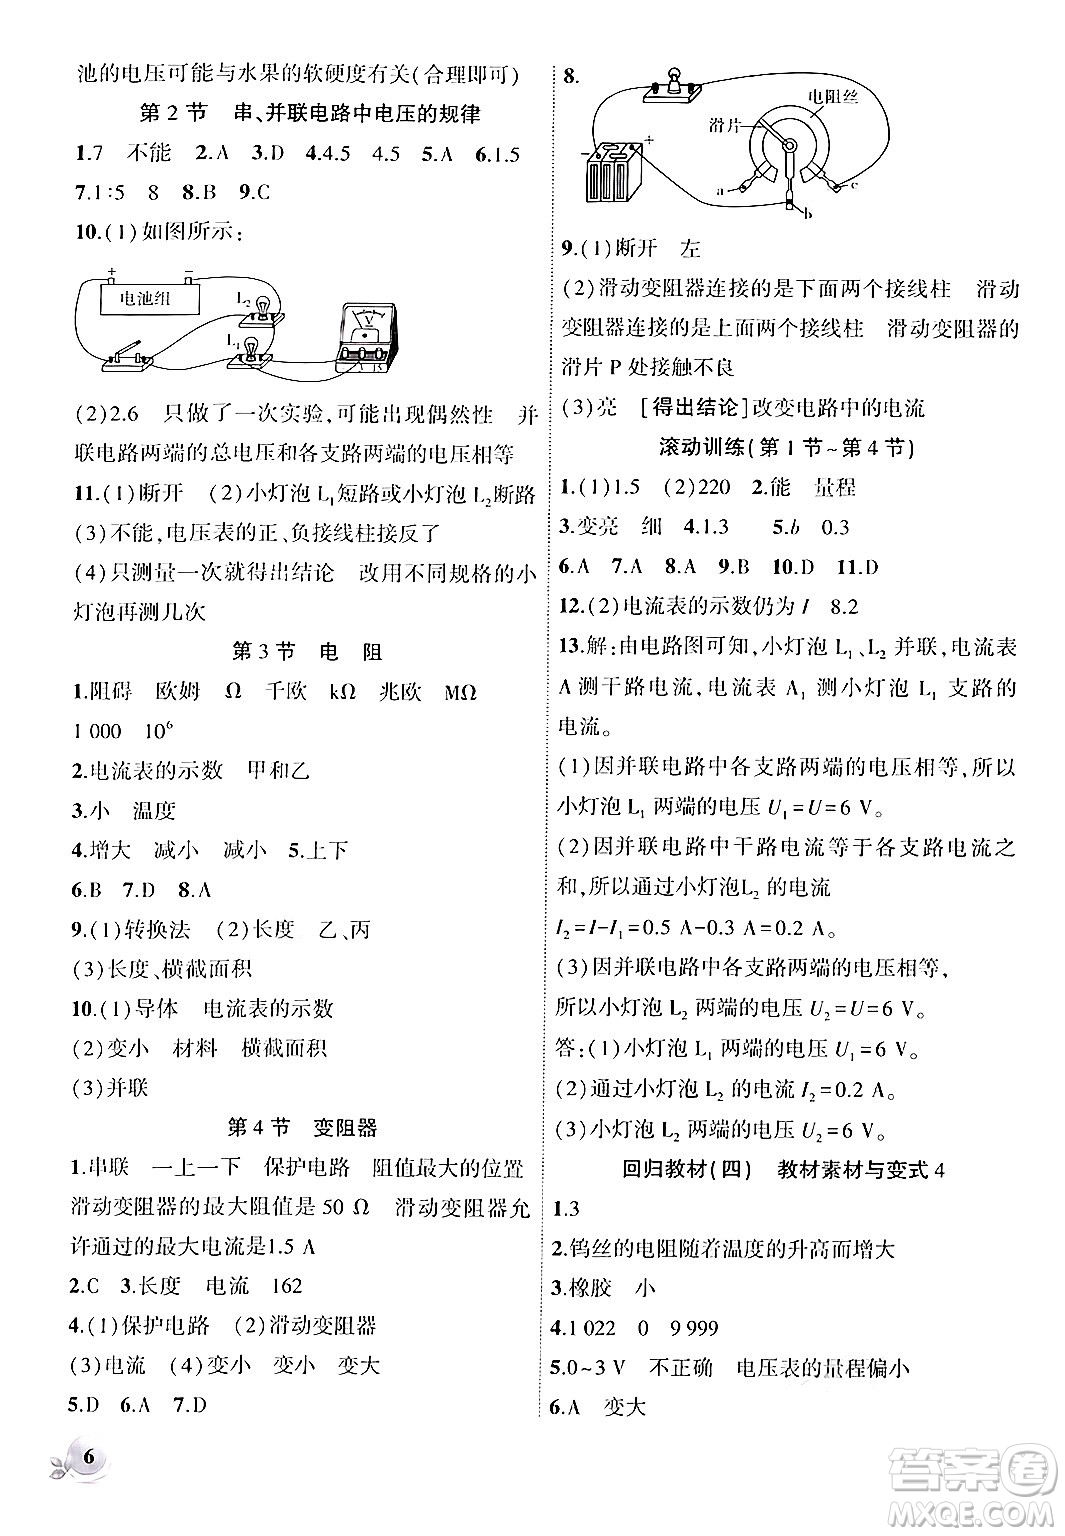 池的电压可能与水果的软硬度有关(合理即可)
第 2 节 串、并联电路中电压的规律
1.7 不能 2.A 3.D 4.4.5 4.5 5.A 6.1.5
7.1∶5 8 8.B 9.C
10.(1)如图所示:
+ −
电池组
L₂
L₁
V
(2)2.6 只做了一次实验,可能出现偶然性 并
联电路两端的总电压和各支路两端的电压相等
11.(1)断开 (2)小灯泡 L₁短路或小灯泡 L₂断路
(3)不能,电压表的正、负接线柱接反了
(4)只测量一次就得出结论 改用不同规格的小
灯泡再测几次
第 3 节 电 阻
1.阻碍 欧姆 Ω 千欧 kΩ 兆欧 MΩ
1 000 10⁶
2.电流表的示数 甲和乙
3.小 温度
4.增大 减小 减小 5.上下
6.B 7.D 8.A
9.(1)转换法 (2)长度 乙、丙
(3)长度、横截面积
10.(1)导体 电流表的示数
(2)变小 材料 横截面积
(3)并联
第 4 节 变阻器
1.串联 一上一下 保护电路 阻值最大的位置
滑动变阻器的最大阻值是 50 Ω 滑动变阻器允
许通过的最大电流是1.5 A
2.C 3.长度 电流 162
4.(1)保护电路 (2)滑动变阻器
(3)电流 (4)变小 变小 变大
5.D 6.A 7.D
6
8.
电阻丝
滑片
+
−
a
b
c
9.(1)断开 左
(2)滑动变阻器连接的是下面两个接线柱 滑动
变阻器连接的是上面两个接线柱 滑动变阻器的
滑片 P 处接触不良
(3)亮 [得出结论]改变电路中的电流
滚动训练(第 1 节~第 4 节)
1.(1)1.5 (2)220 2.能 量程
3.变亮 细 4.1.3 5.b 0.3
6.A 7.A 8.A 9.B 10.D 11.D
12.(2)电流表的示数仍为 I 8.2
13.解:由电路图可知,小灯泡 L₁、L₂ 并联,电流表
A 测干路电流,电流表 A₁ 测小灯泡 L₁ 支路的
电流。
(1)因并联电路中各支路两端的电压相等,所以
小灯泡 L₁ 两端的电压 U₁=U=6 V。
(2)因并联电路中干路电流等于各支路电流之
和,所以通过小灯泡L₂ 的电流
I₂=I−I₁=0.5 A−0.3 A=0.2 A。
(3)因并联电路中各支路两端的电压相等,
所以小灯泡 L₂ 两端的电压 U₂=U=6 V。
答:(1)小灯泡 L₁ 两端的电压 U₁=6 V。
(2)通过小灯泡 L₂ 的电流 I₂=0.2 A。
(3)小灯泡 L₂ 两端的电压 U₂=6 V。
回归教材(四) 教材素材与变式 4
1.3
2.钨丝的电阻随着温度的升高而增大
3.橡胶 小
4.1 022 0 9 999
5.0~3 V 不正确 电压表的量程偏小
6.A 变大
答案卷
MXQE.COM